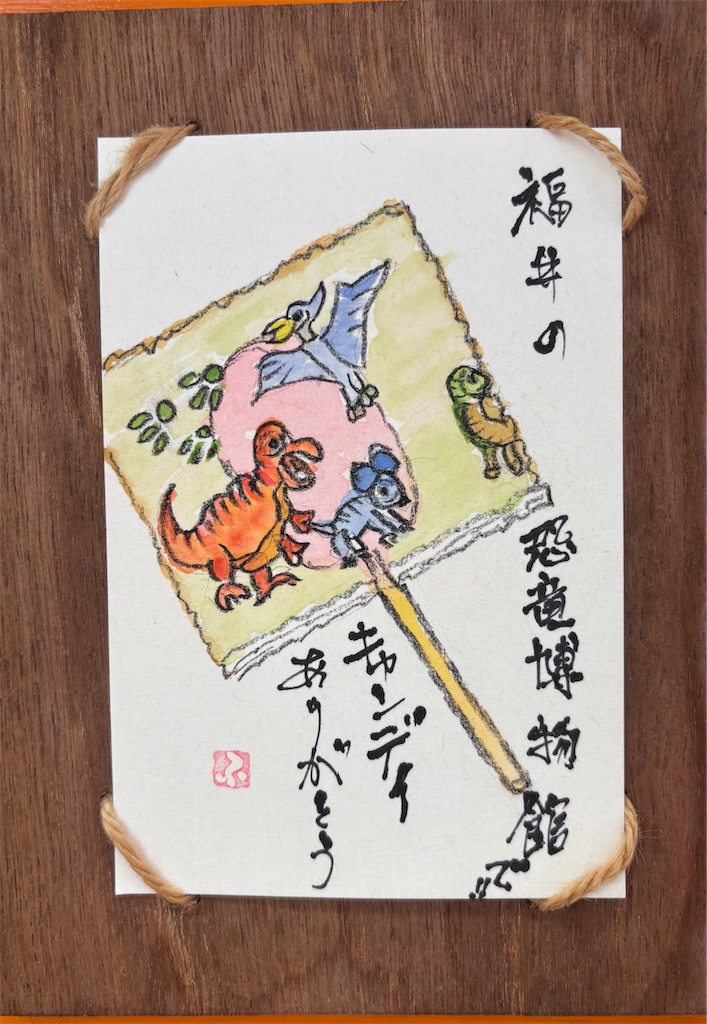 福井の
恐竜博物館で!!
キャンディ
ありがとう
ふ